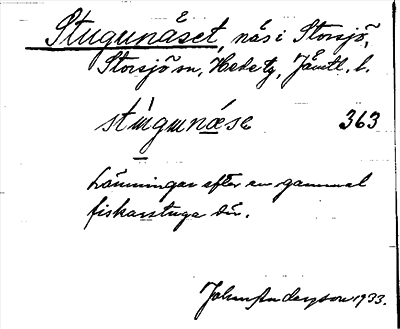 Stugunäset, näs i Storsjö,
Storsjö sn, Hede tg, Jämtl. l.
stúgunǽse 363
Lämningar efter en gammal
fiskarstuga där.
Johan Anderson 1933.